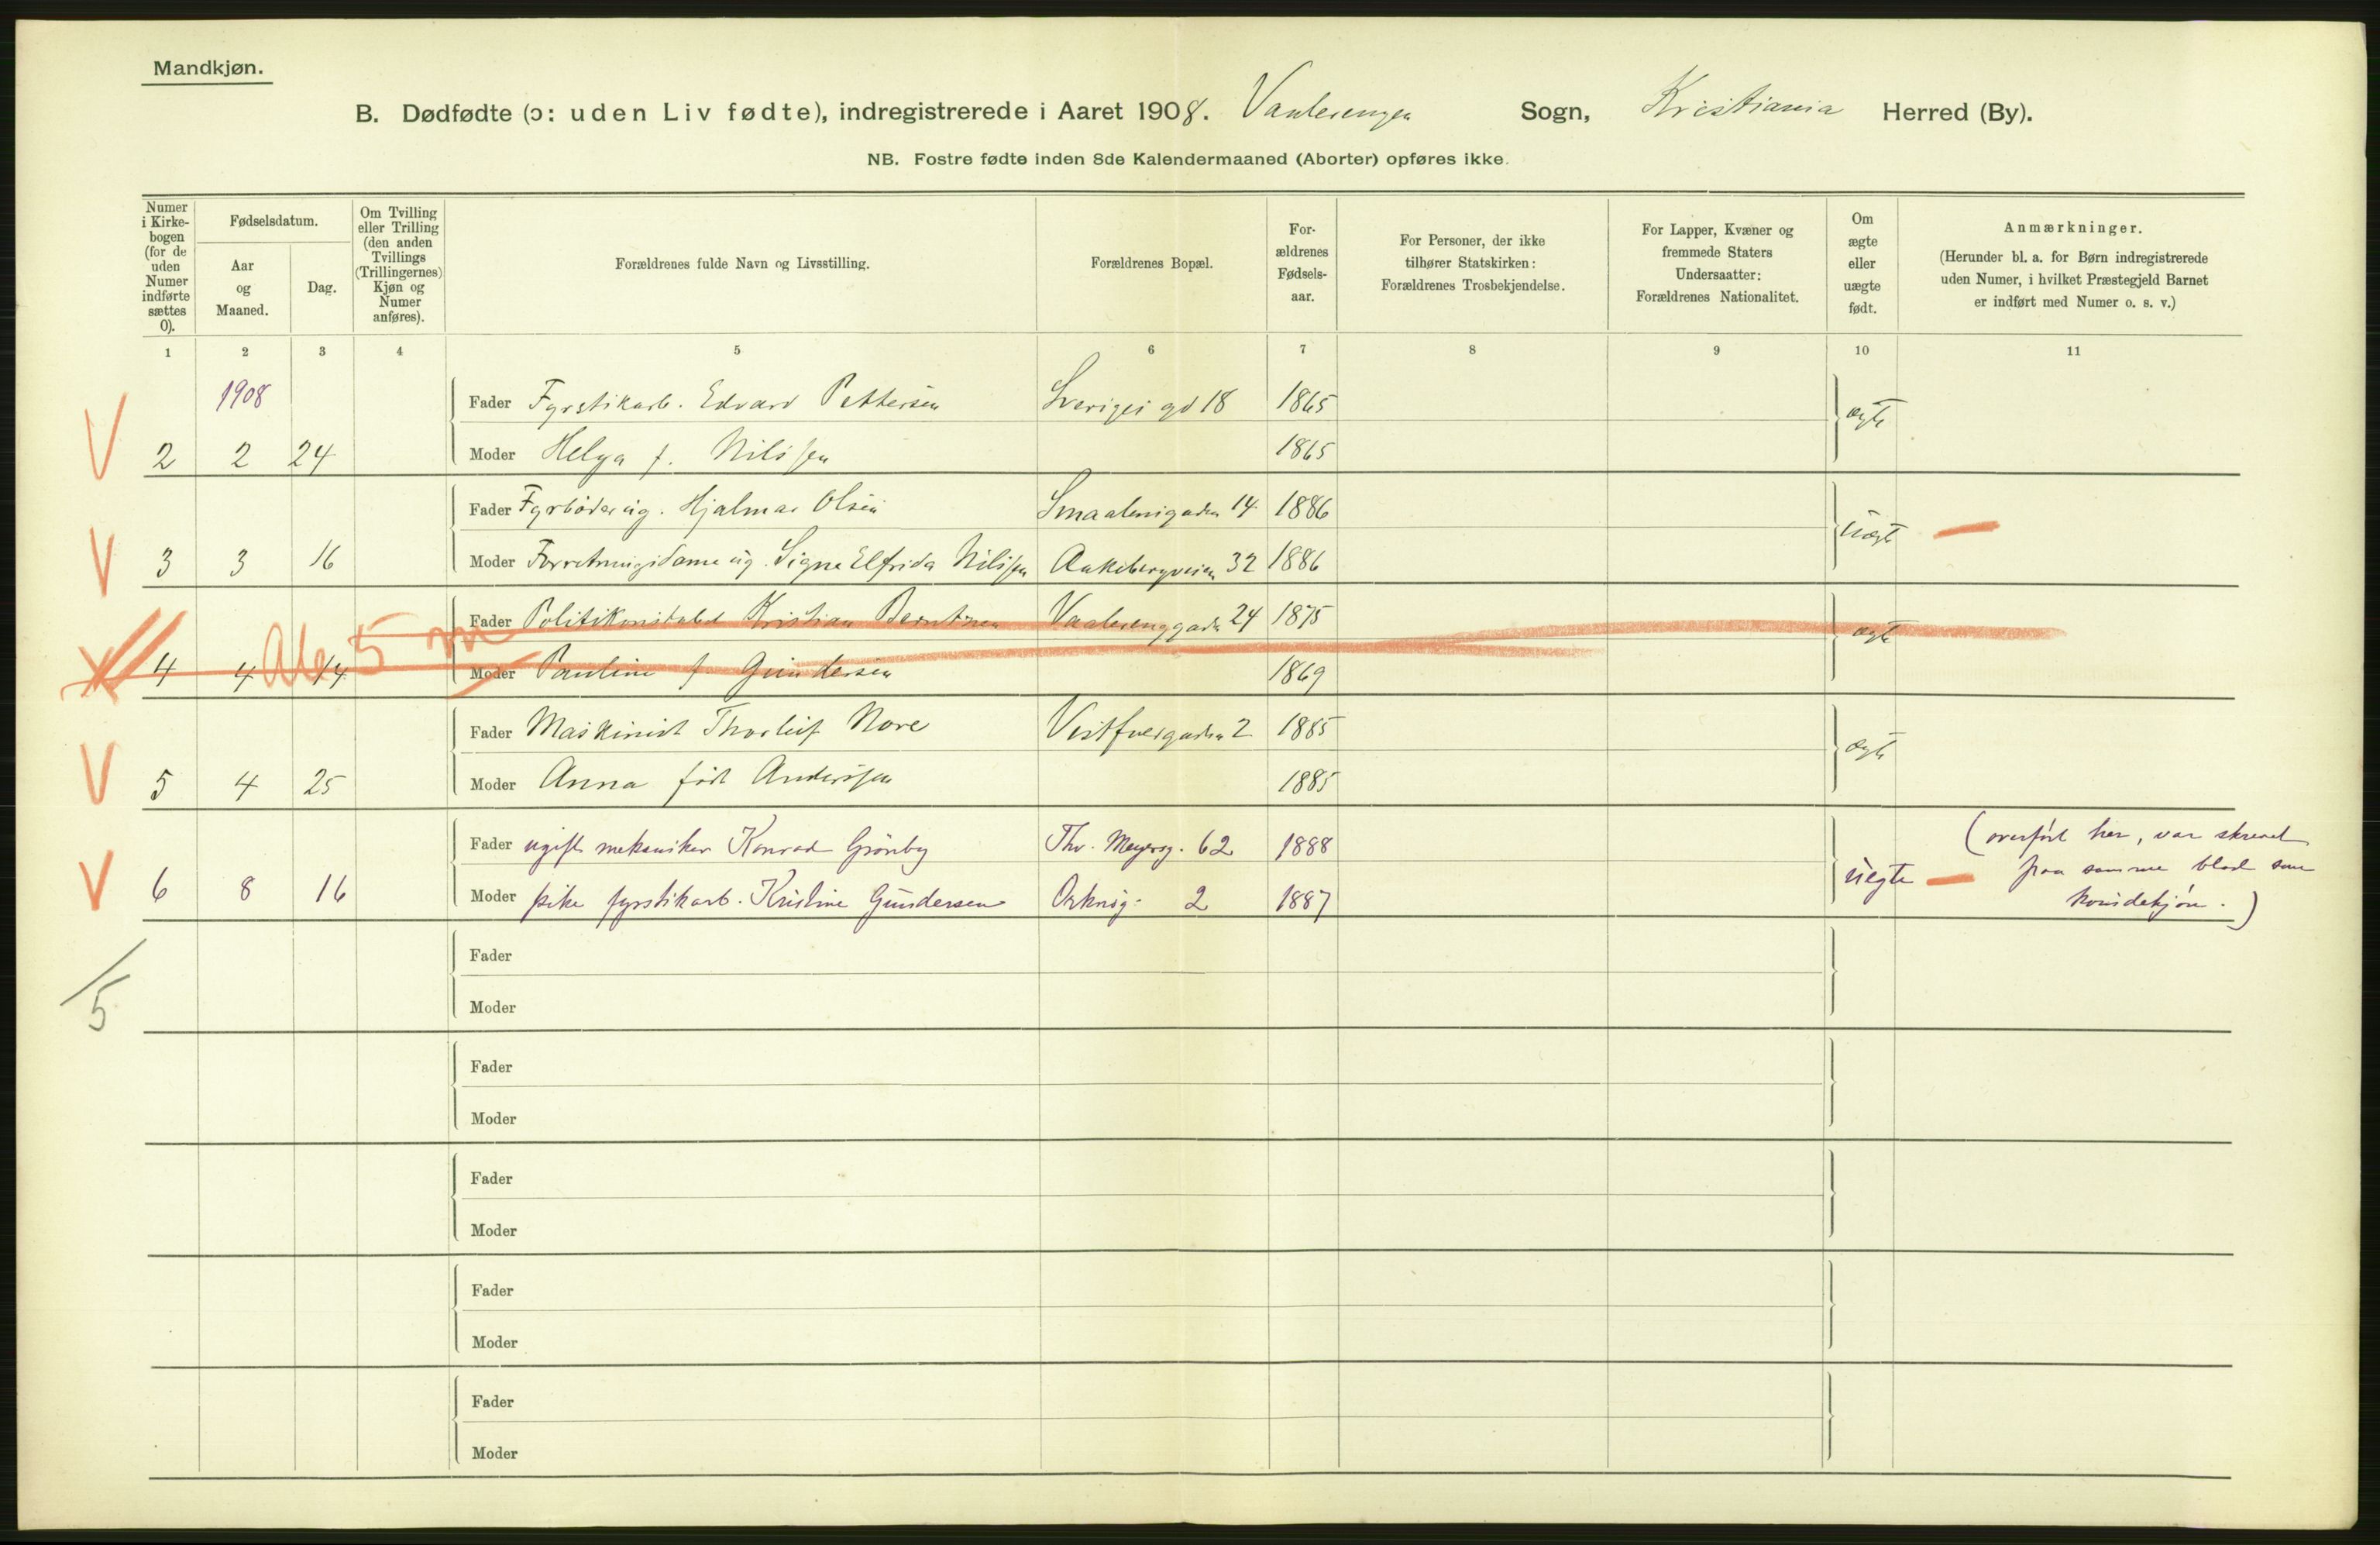 Mandkjøn.
B. Dødfødte (ɔ: uden Liv fødte), indregistrerede i Aaret 1908. Vaalerengen Sogn, Kristiania Herred (By).
NB. Fostre fødte inden 8de Kalendermaaned (Aborter) opføres ikke.
Numer i Kirkebogen (for de uden Numer indførte sættes 0).
Fødselsdatum.
Aar og Maaned.
Dag.
Om Tvilling eller Trilling (den anden Tvillings (Trillingernes) Kjøn og Numer anføres).
Forældrenes fulde Navn og Livsstilling.
Forældrenes Bopæl.
For-ældrenes Fødsels-aar.
For Personer, der ikke tilhører Statskirken: Forældrenes Trosbekjendelse.
For Lapper, Kvæner og fremmede Staters Undersaatter: Forældrenes Nationalitet.
Om ægte eller uægte født.
Anmærkninger.
(Herunder bl. a. for Børn indregistrerede uden Numer, i hvilket Præstegjeld Barnet er indført med Numer o. s. v.)
1 2 3 4 5 6 7 8 9 10 11
1908
Fader Fyrstikarb. Edvard Pettersen Sveriges gd 18 1865 ægte
V 2 2 24 Moder Helga f. Nilssen 1865
Fader Fyrbøder ug. Hjalmar Olsen Smaalensgaden 14 1886 uægte
V 3 3 16 Moder Forretningsdame ug. Signe Elfrida Nilssen Aakebergveien 32 1886
Fader Politikonstabel Kristian Berntsen Vaalerenggaden 24 1875 ægte
4 4 14 Moder Pauline f. Gundersen 1869
5 m
Fader Maskinist Thorleif Nore Vestfoldgaden 2 1885 ægte
V 5 4 25 Moder Anna født Anderssen 1885
Fader ugift mekaniker Konrad Grønby Thv. Meyersg. 62 1888 uegte
V 6 8 16 Moder pike fyrstikarb. Kristine Gundersen Orknøg. 2 1887
(overført her, var skrevet
paa samme blad som
kvindekjøn.)
5
Fader
Moder
Fader
Moder
Fader
Moder
Fader
Moder
Fader
Moder